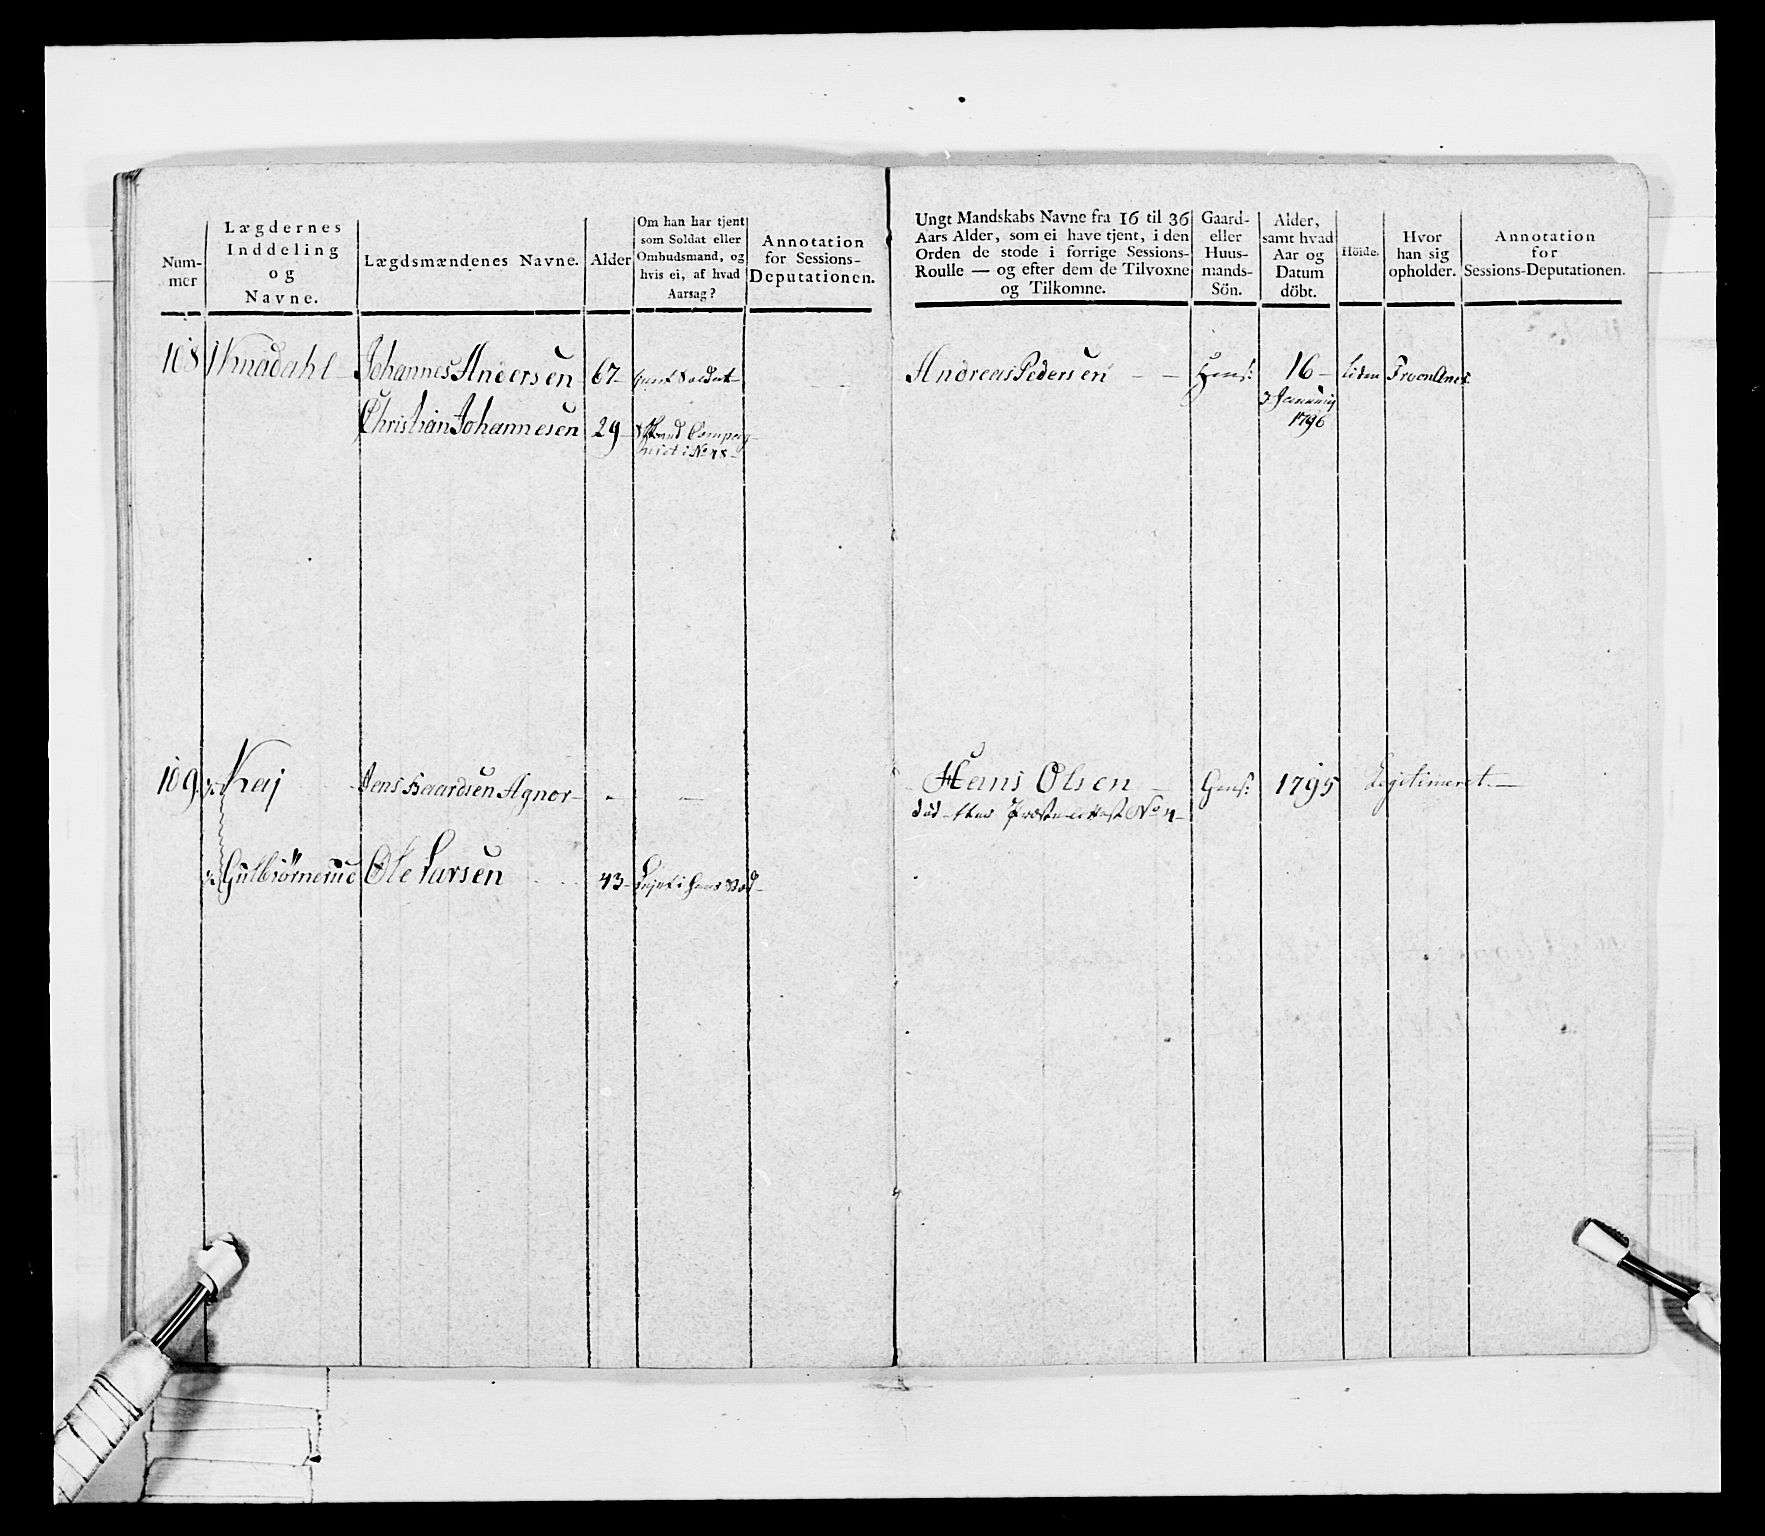 Num-
mer
Lægdernes
Inddeling
og
Navne.
Lægdsmændenes Navne.
Alder
Om han har tjent
som Soldat eller
Ombudsmand, og
hvis ei, af hvad
Aarsag?
Annotation
for Sessions-
Deputationen.
Ungt Mandskabs Navne fra 16 til 36
Aars Alder, som ei have tjent, i den
Orden de stode i forrige Sessions-
Roulle — og efter dem de Tilvoxne
og Tilkomne.
Gaard-
eller
Huus-
mands-
Sön.
Alder,
samt hvad
Aar og
Datum
döbt.
Höide.
Hvor
han sig
opholder.
Annotation
for
Sessions-Deputationen.
108 Knadahl Johannes Andersen 67 Soldat
Andreas Pedersen 16 liden
3 January
1796
Christian Johannesen 29
i No 48
109 Kaj Jens Haardsen Agnor
Hans Olsen 1795 Legitimeret
død No 4
Gulbiørnerud Ole Larsen 43